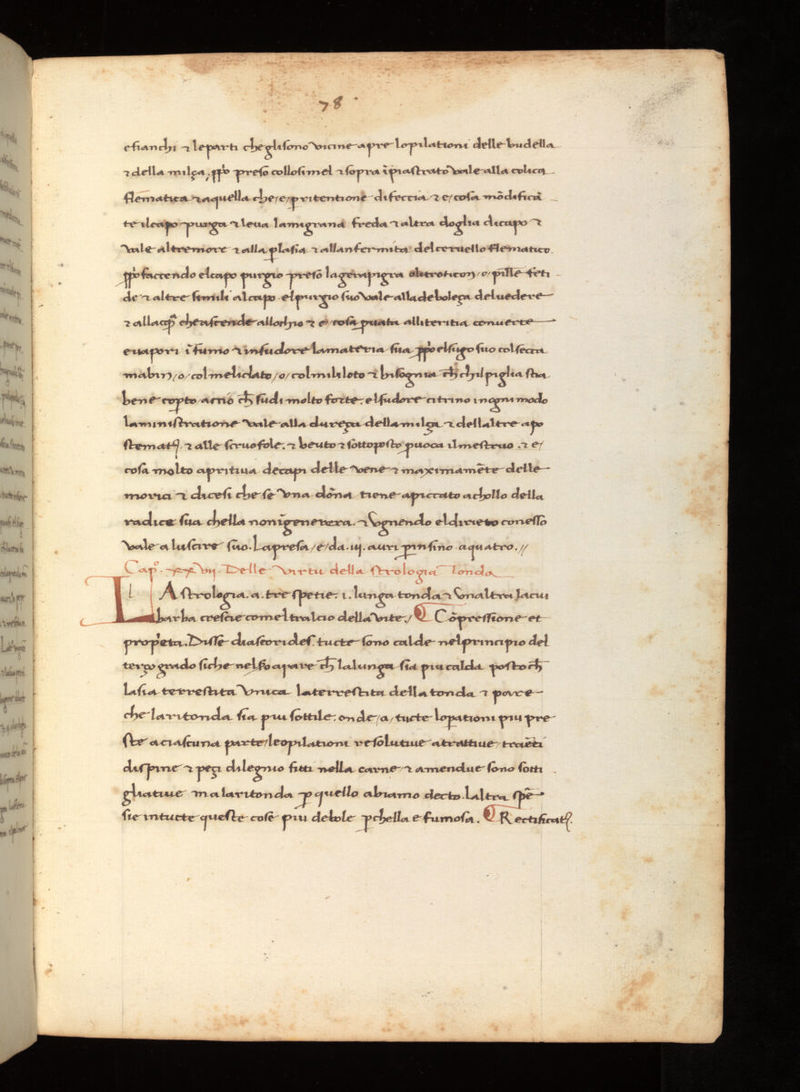 78
efianchi ⁊ leparti cheglisono vicine apre lopilationi delle budella
⁊ della milça, ꝓpo preso collosimel ⁊ sopra īpiastrato vale alla colica
flematica ⁊ aquella che/e/ꝑ ritentione di feccia ⁊ e/cosa mōdificā
te ilcapo purga ⁊ leva lamigrana freda ⁊ altra doglia dicapo ⁊
vale altremore ⁊ alla ꝑlasia ⁊ allanfermita del cervello flematico
facendo elcapo purgio preso lagerapigra /o/ pille feti
de ⁊ altre simili alcapo elpurgio suo vale alladeboleça delvedere
⁊ alla che ascende allochio ⁊ e cosa ꝓuata alliteritia converte
evapori ī fumo ⁊ insudore lamateria sua elsugo suo col secca
mabin /o/ colmeliclato /o/ colmililoto ⁊ bisognia ch̄ chilpiglia stia
bene coꝑto acio ch̄ sudi molto forte. elsudore citrino inogni modo
laministratione vale alla dureça della milça ⁊ dellaltre apo
⁊ alle scruofole. ⁊ beuto ⁊ sottoposto ꝓuoca ilmestruo. ⁊ e/
cosa molto apritiva decapi delle vene ⁊ maximamēte delle
morici ⁊ dicesi che se una dōna tiene apiccato achollo della
radice sua chella nonīgenerera. ⁊ Ugnendo eldirieto conesso
vale a luscire suo. Lapresa /e/ da .iij. auri ꝑinsino aquatro.//
Cap. xxvij. Delle virtu della strologia tonda
LA strologia. a. tre spetie. i. lunga tonda ⁊ unaltra lacui
barba crescie come ltralcio della vite./ ¶ Cōpressione et
propeta. Disse diascorides. tucte sono calde nelprincipio del
terço grado siche nelso apare ch̄ lalunga sia piu calda posto ch̄
lasia terrestita vinca laterrestita della tonda ⁊ pare
che laritonda sia piu sottile. onde /a/ tucte lopationi piu pre
ste aciascuna parte/leopilationi resolutive atrattive
dispine ⁊ peçi dilegnio fitti nella carne ⁊ amendue sono sotti
gliative ma laritonda ꝑ quello abiamo decto. laltra spē
sie intucte queste cose piu debole ꝑchella e fumosa. ¶ Rectificatꝭ.